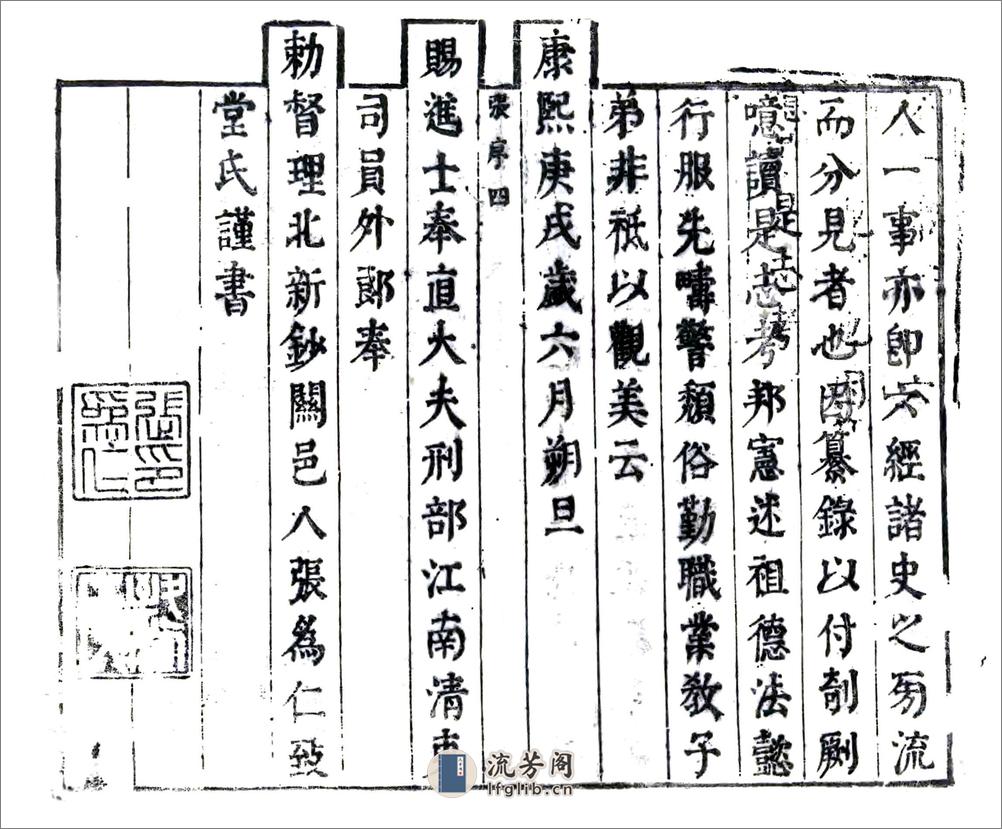 人一事亦即六經諸史之旁流
而分見者也因纂錄以付剞劂
噫讀是志考邦憲述祖德法懿
行服先疇警頹俗勤職業教子
弟非祗以觀美云
康熙庚戌歲六月朔旦
張序四
賜進士奉直大夫刑部江南清吏
司員外郎奉
勅督理北新鈔關邑人張為仁致
堂氏謹書
張為仁印
流芳阁
lfglib.cn